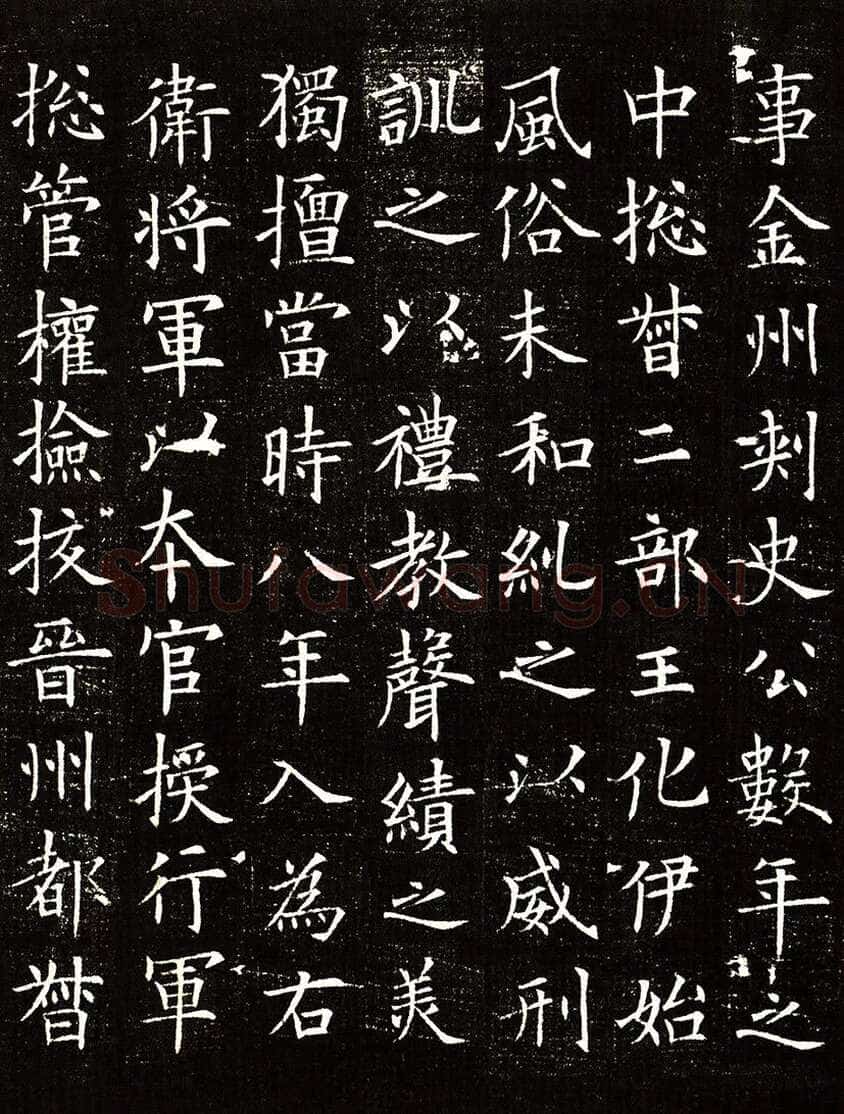 事金州刾史公數年之
中捴督二部王化伊始
風俗未和糺之以威刑
訓之以禮教聲績之美
獨擅當時八年入為右
衛將軍以本官授行軍
捴管權撿挍晉州都督
Shufawang.CN